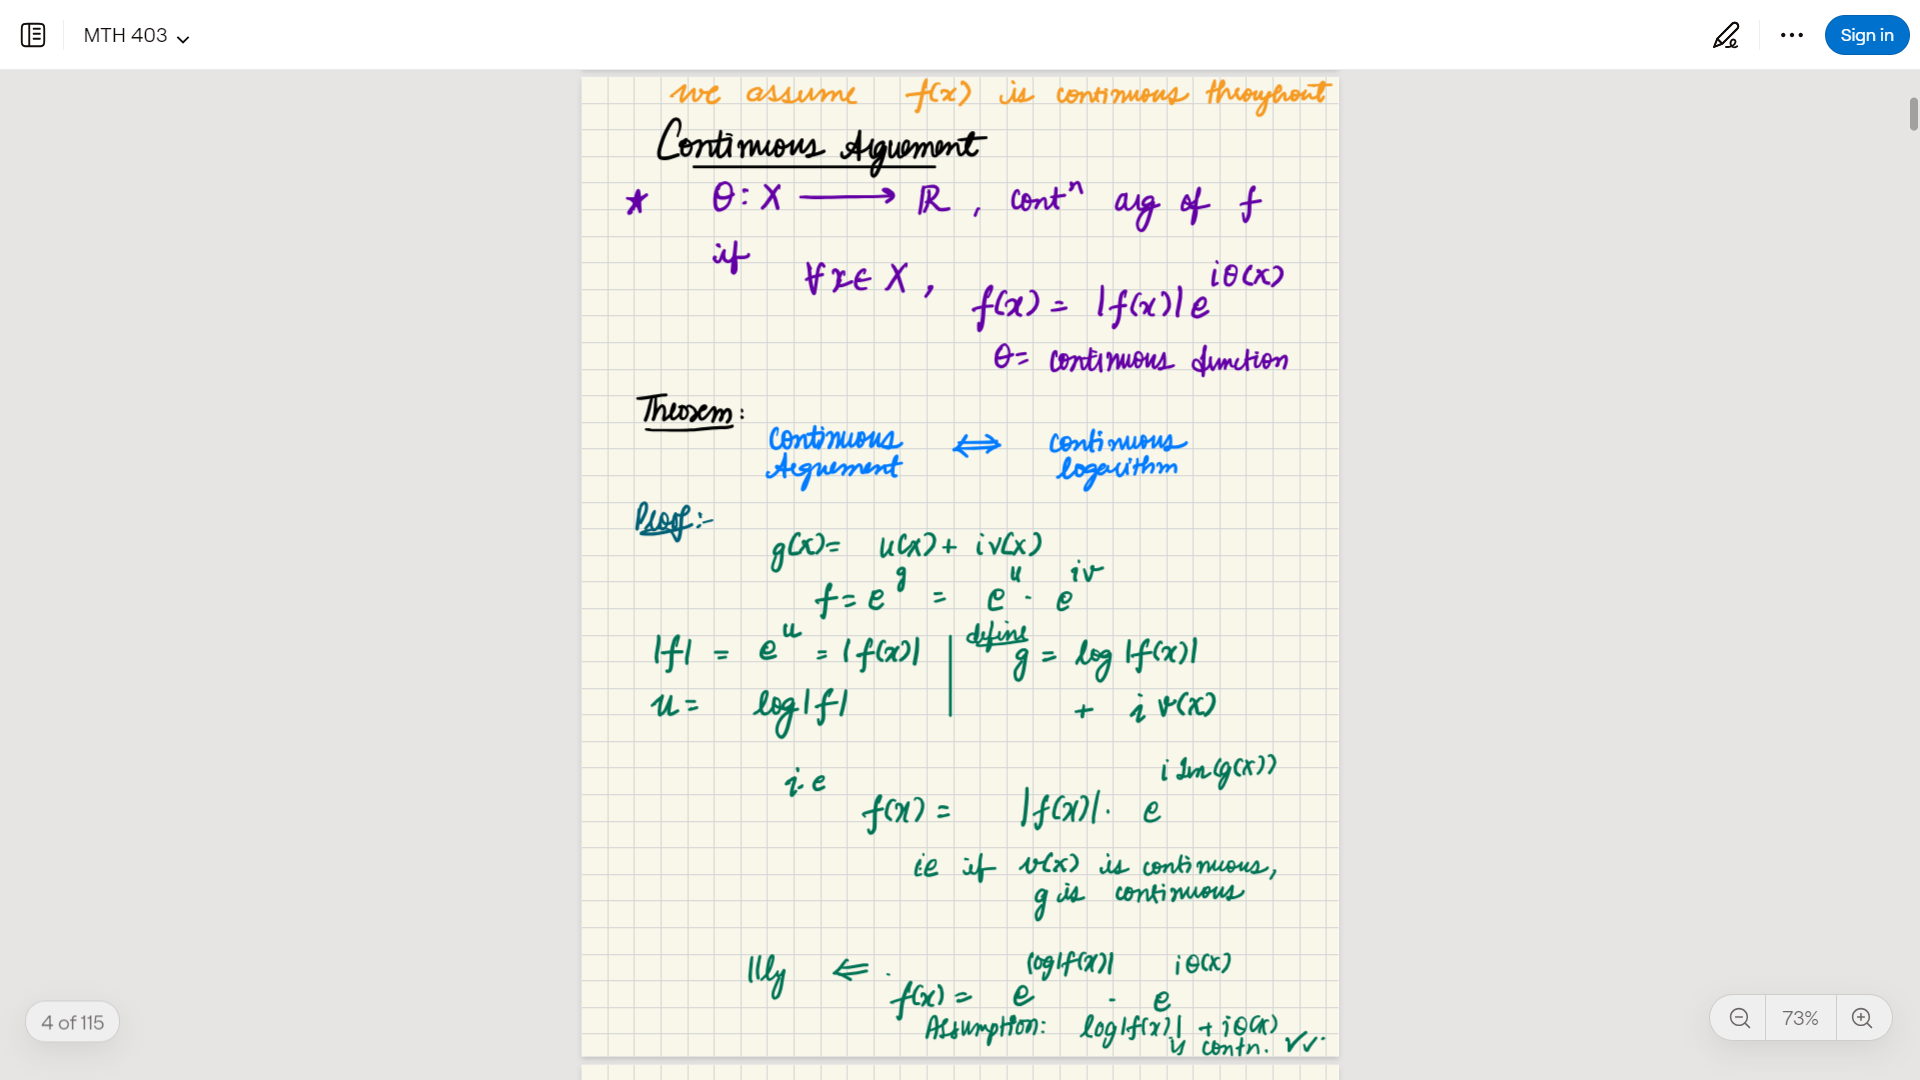 MTH 403
Sign in
we assume f(x) is continuous throughout
Continuous Arguement
* θ: X ⟶ ℝ, contⁿ arg of f
if
∀x∈ X, f(x) = |f(x)| e^{iθ(x)}
θ = continuous function
Theorem:
Continuous Arguement ⟺ continuous logarithm
Proof:-
g(x) = u(x) + iv(x)
f = e^g = e^u · e^{iv}
|f| = e^u = |f(x)| | define g = log |f(x)|
u = log|f| + i v(x)
i.e
f(x) = |f(x)| · e^{i Im(g(x))}
ie if v(x) is continuous,
g is continuous
llly ⟸ . f(x) = e^{log|f(x)|} · e^{iθ(x)}
Assumption: log|f(x)| + iθ(x)
is contn. ✓✓
4 of 115
73%